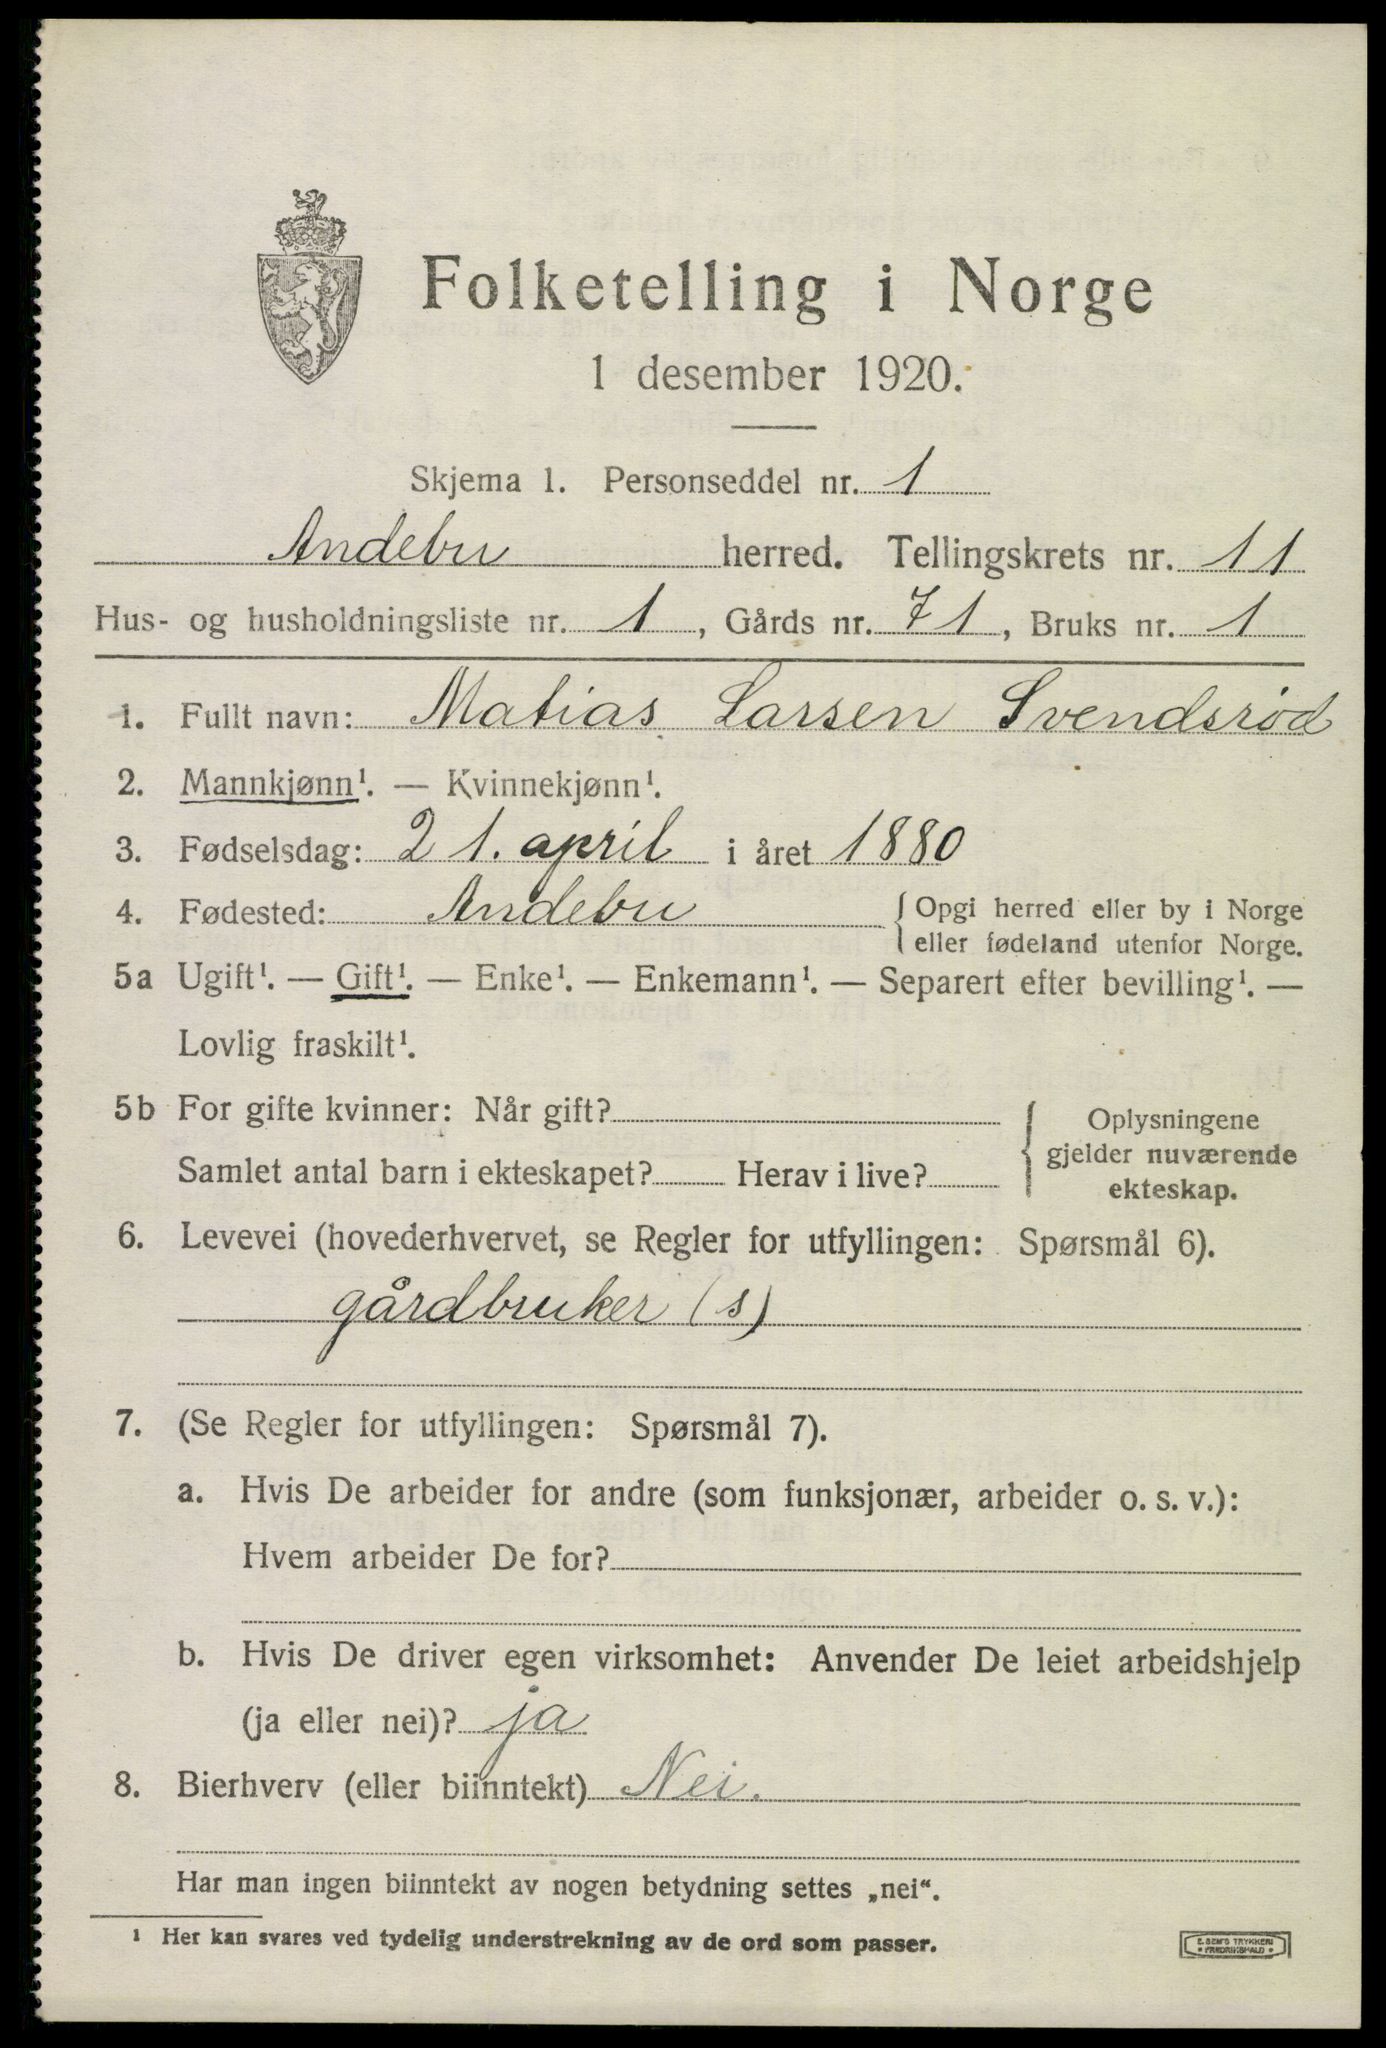 Folketelling i Norge
1 desember 1920.
Skjema 1. Personseddel nr. 1
Andebu herred. Tellingskrets nr. 11
Hus- og husholdningsliste nr. 1, Gårds nr. 71, Bruks nr. 1
1. Fullt navn: Matias Larsen Svendsrød
2. Mannkjønn¹. — Kvinnekjønn¹.
3. Fødselsdag: 21. april i året 1880
4. Fødested: Andebu { Opgi herred eller by i Norge
eller fødeland utenfor Norge.
5a Ugift¹. — Gift¹. — Enke¹. — Enkemann¹. — Separert efter bevilling¹. —
Lovlig fraskilt¹.
5b For gifte kvinner: Når gift?
Samlet antal barn i ekteskapet? Herav i live?
{ Oplysningene
gjelder nuværende
ekteskap.
6. Levevei (hovederhvervet, se Regler for utfyllingen: Spørsmål 6).
gårdbruker (s)
7. (Se Regler for utfyllingen: Spørsmål 7).
a. Hvis De arbeider for andre (som funksjonær, arbeider o. s. v.):
Hvem arbeider De for?
b. Hvis De driver egen virksomhet: Anvender De leiet arbeidshjelp
(ja eller nei)? ja
8. Bierhverv (eller biinntekt) Nei.
Har man ingen biinntekt av nogen betydning settes „nei“.
¹ Her kan svares ved tydelig understrekning av de ord som passer.
E. SEM'S TRYKKERI
FREDRIKSHALD